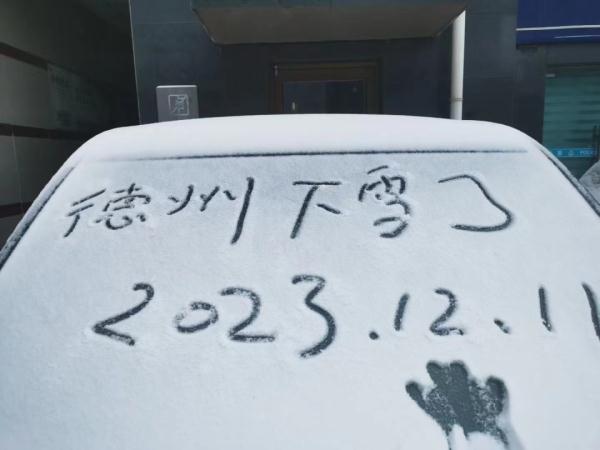 德州下雪了
2023.12.11